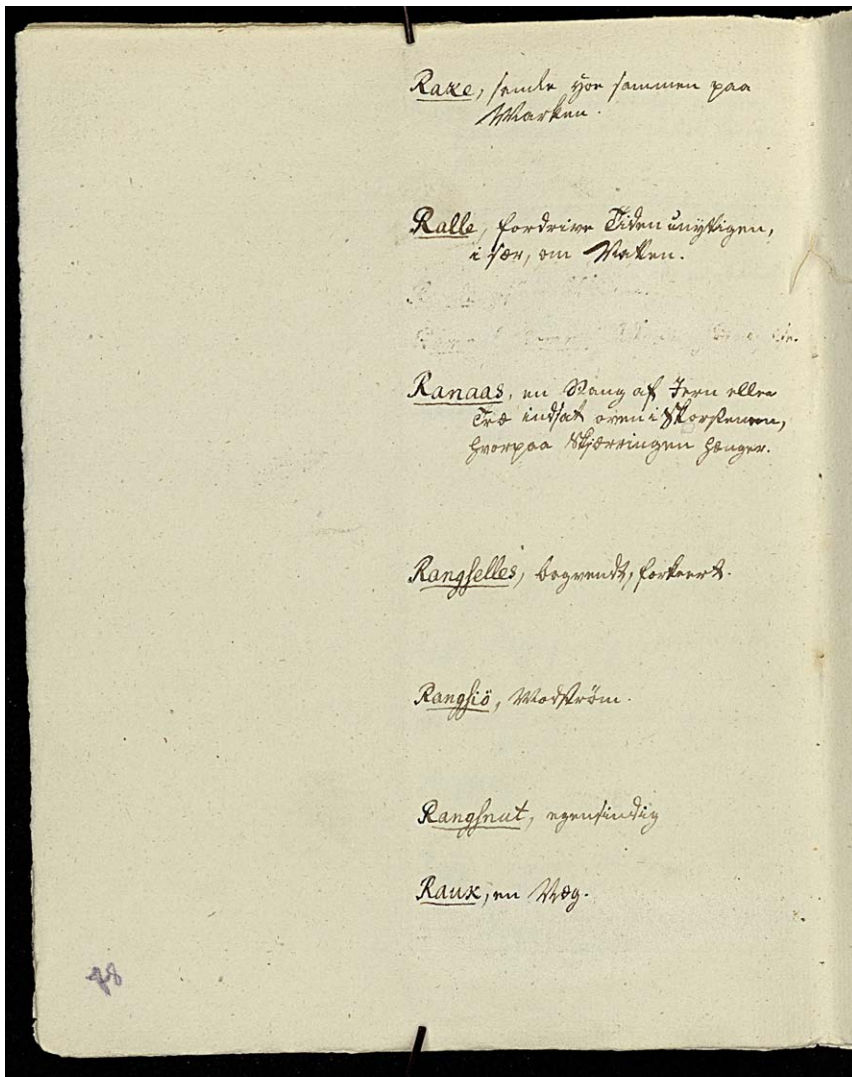 Rake, samle Høe sammen paa
Marken.
Ralle, fordrive Tiden unyttigen,
i sær, om Natten.
Ranaas, en Stang af Jern eller
Træ indsat oven i Skorstenen,
hvorpaa Skjærringen hænger.
Rangselles, bagvendt, forkeert.
Rangsiö, Modström.
Rangsnut, egensindig
Rauk, en
48